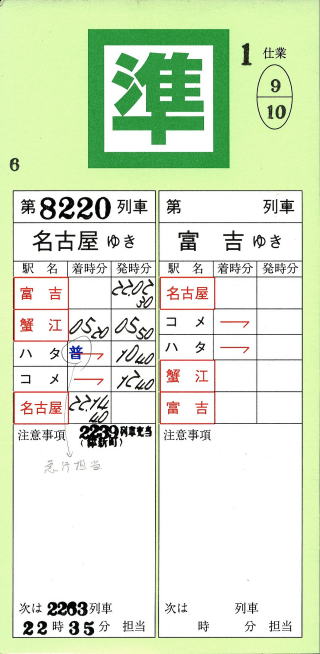 準
1 仕業
9
10
6
第8220列車
名古屋 ゆき
駅名 着時分 発時分
富吉 22.02 30
蟹江 05 20 05 50
ハタ 普 → 10 40
コメ → 12 40
名古屋 22.14 40
注意事項 2239列車充当
(弥新町)
急行担当
次は 2263列車
22時35分 担当
第 列車
富吉 ゆき
駅名 着時分 発時分
名古屋
コメ →
ハタ →
蟹江
富吉
注意事項
次は 列車
時 分 担当